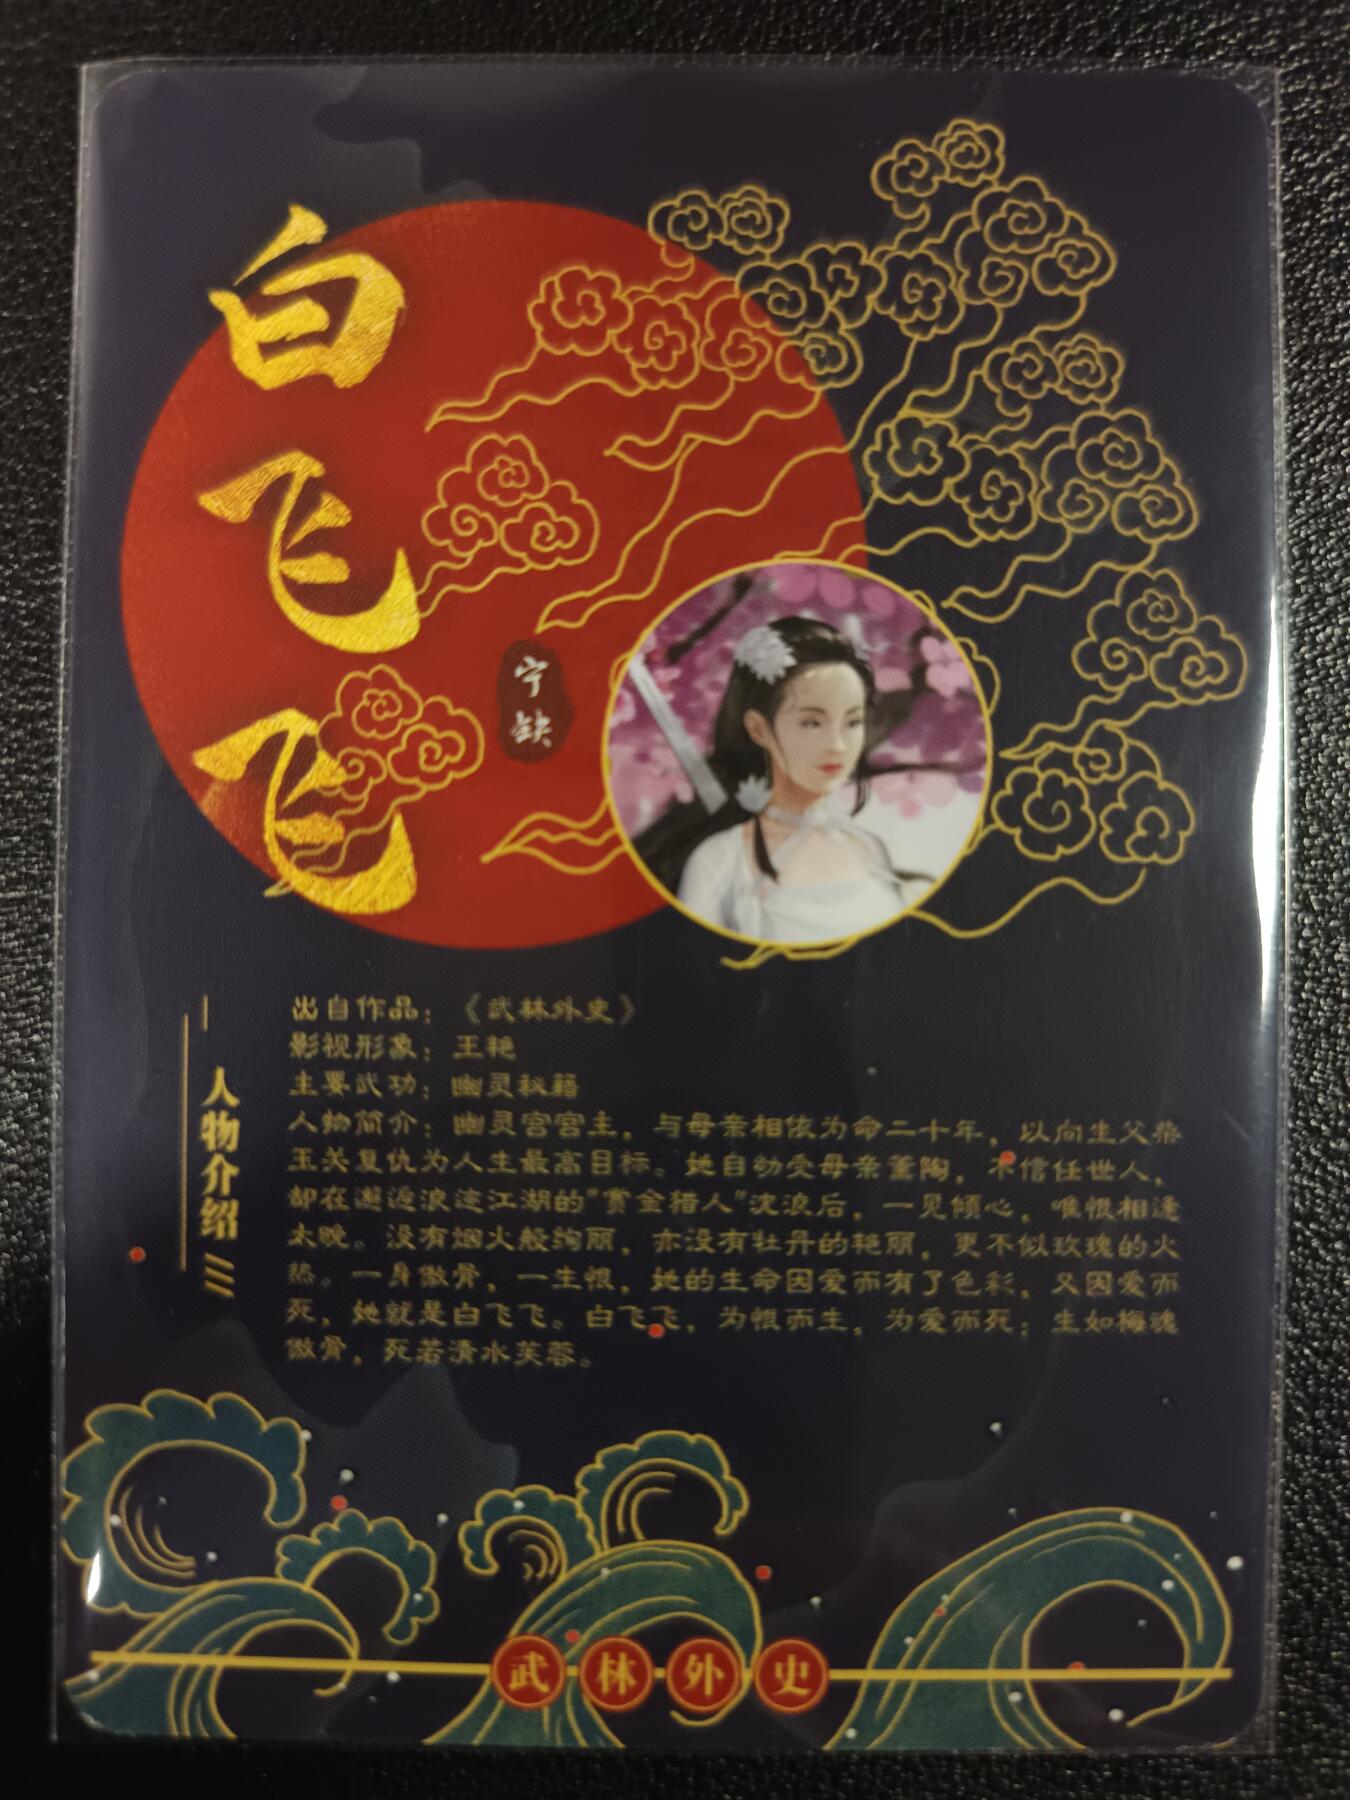 白飞飞
宁缺
人物介绍
出自作品：《武林外史》
影视形象：王艳
主要武功：幽灵秘籍
人物简介：幽灵宫宫主，与母亲相依为命二十年，以向生父柴
玉关复仇为人生最高目标。她自幼受母亲薰陶，不信任世人，
却在邂逅浪迹江湖的"赏金猎人"沈浪后，一见倾心，唯恨相逢
太晚。没有烟火般绚丽，亦没有牡丹的艳丽，更不似玫瑰的火
热。一身傲骨，一生恨，她的生命因爱而有了色彩，又因爱而
死，她就是白飞飞。白飞飞，为恨而生，为爱而死；生如梅魂
傲骨，死若清水芙蓉。
武林外史